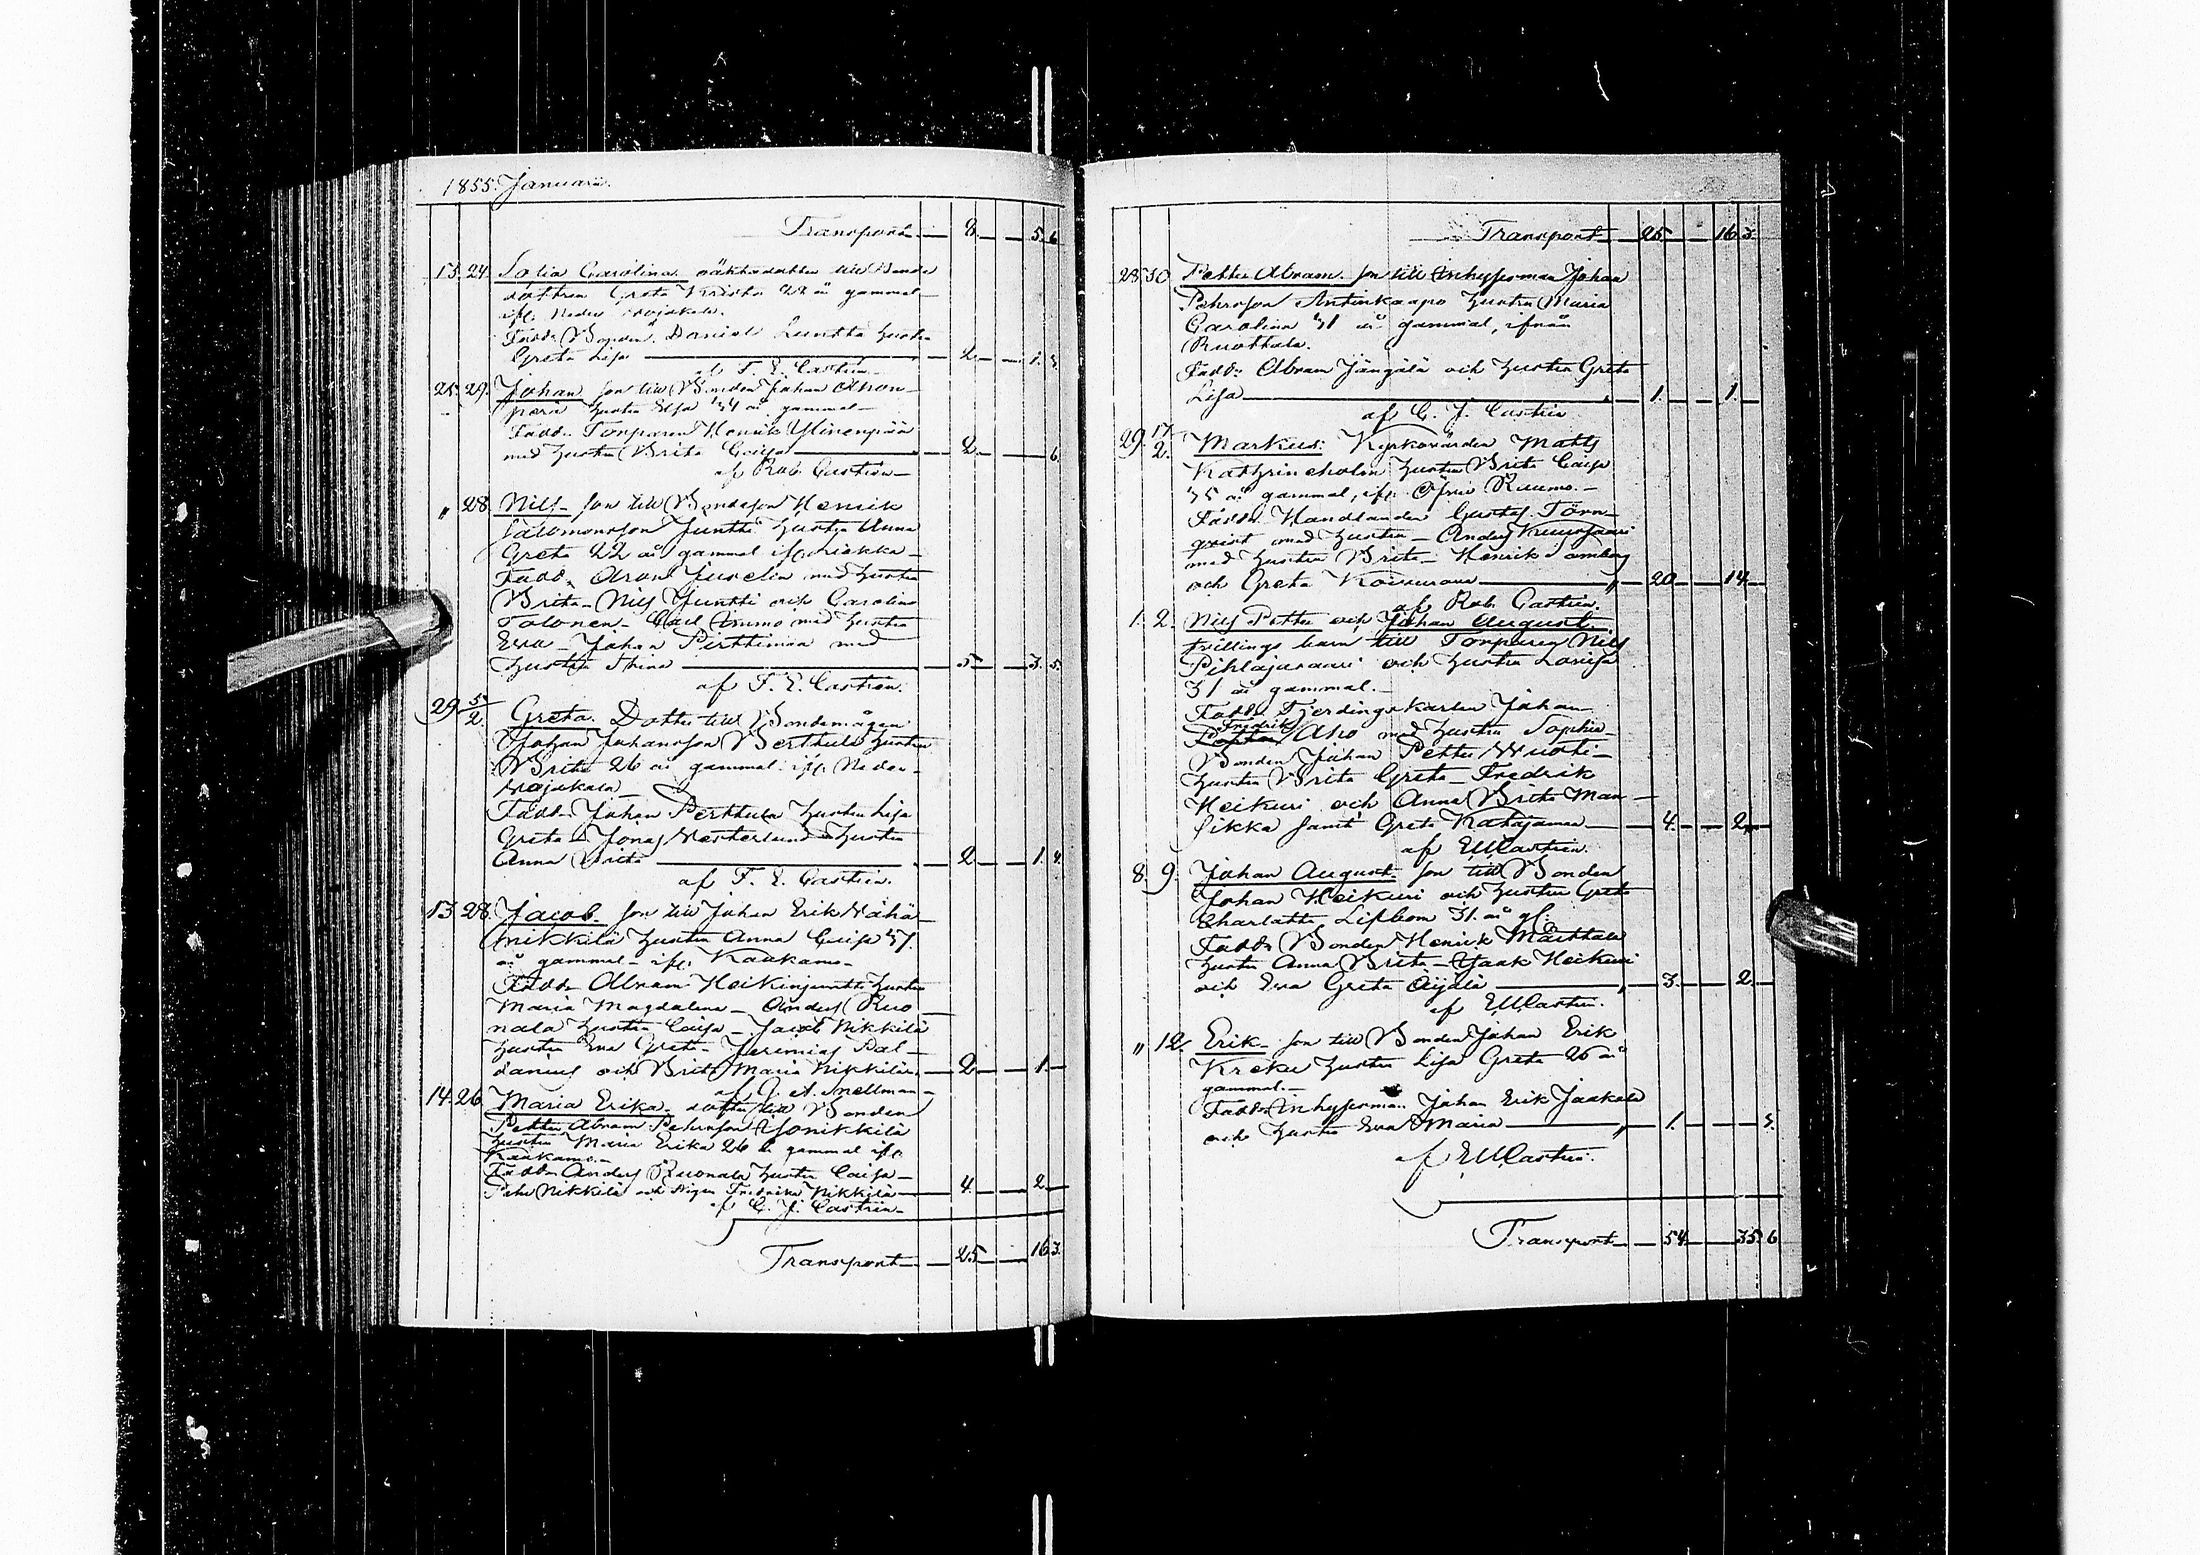 1855. Januarii.
Transport 8. 5. 6.
13. 24. Sofia Carolina oäkta dotter till Bonde
dottren Greta Kristin 22 år gammal
ifr. Neder
Fadd. Bonden Daniel Luntta hustru
Greta Lisa 2. 1. 3.
af F. E. Castrén
25. 29. Johan son till Bonden Johan
hustru Elsa 34 år gammal
Fadd. Torparen Henrik Ylinenpää
med hustru Brita Caisa 2. 6.
af Rob. Castrén
" 28. Nils son till Bondeson Henrik
Salomonsson Juntti hustru Anna
Greta 22 år gammal ifr.
Fadd. Aron Juselin med hustru
Brita Nils Juntti och Carolina
Tolonen Carl med hustru
Eva Johan Pirttimaa med
hustru Stina 5. 3. 5.
af F. E. Castren.
29. 5/2. Greta. Dotter till Bondemågen
Johan Johansson Berthula hustru
Brita 26 år gammal ifr. Neder
Fadd. Johan Perttula hustru Lisa
Greta Jonas Westerlund hustru
Anna Brita 2. 1. 4.
af F. E. Castrén.
13. 28. Jacob. son till Johan Erik Wähä
nikkilä hustru Anna Caisa 37.
år gammal ifr. Kaakamo
Fadd. Abram Heikinjuntti hustru
Maria Magdalena Anders Ruo
nala hustru Caisa Jacob Nikkilä
hustru Eva Greta Jeremias Pal
danius och Brita Maria Nikkilä 2. 1.
af J. A. Snellman
14. 26. Maria Erika. dotter till Bonden
Petter Abram Pehrsson Yonikkilä
hustru Maria Erika 26 år gammal ifr.
Kaakamo
Fadd. Anders Ruonala hustru Caisa
Pehr Nikkilä och Pigan Fredrika Nikkilä 4. 2.
af C. J. Castrén
Transport 25 16 3.
Transport 25 16 3.
28 30 Petter Abram. son till Inhysesman Johan
Pehrsson Antinkaapo hustru Maria
Carolina 31 år gammal, ifrån
Ruottala.
Fadd. Abram Jängälä och hustru Greta
Lisa 1. 1.
af C. J. Castrén
29. 17/2. Markus. Kyrkovärden Matts
Kathrineholm hustru Brita Caisa
35 år gammal, ifr. Öfre Raumo.
Fadd. Handlanden Gustaf Törn
qvist med hustru Anders
med hustru Brita Henrik Lamberg
och Greta 20 14
af Rob. Castrén.
1. 2. Nils Petter och Johan August.
tvillings barn till Torparen Nils
Pihlajavaari och hustru Lovisa
31 år gammal.
Fadd. Fjerdingskarlen Johan
Fredrik
Petter Aho med hustru Sophia
Bonden Johan Petter Wuoti
hustru Brita Greta Fredrik
Heikuri och Anna Brita Man
sikka samt Greta Katajamaa 4. 2.
af EUCastrén.
8. 9. Johan August. son till Bonden
Johan Heikuri och hustru Greta
Charlatta Lifbom 31. år gl.
Fadd. Bonden Henrik Märttala
hustru Anna Brita Isaak Heikuri
och Eva Greta Äijälä 3. 2.
af EUCastrén.
" 12. Erik son till Bonden Johan Erik
Kreku hustru Lisa Greta 26 år
gammal.
Fadd. Inhysesman Johan Erik Jaakola
och hustru Eva Maria 1. 3.
af EUCastrén.
Transport 54 35 6